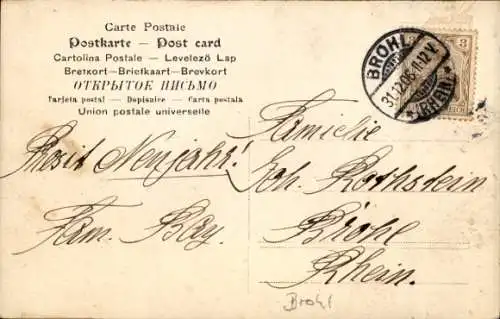 Carte Postale
Postkarte — Post card
Cartolina Postale — Levelező Lap
Brefkort—Briefkaart—Brevkort
ОТКРЫТОЕ ПИСЬМО
Tarjeta postal — Dopisnice — Carta postala
Union postale universelle
BROHL
31.12.06. 11-12 V.
(RHEIN)
3
Prosit Neujahr!
Fam. Bay.
Familie
Joh. Rothstein
Brohl
Rhein.
Brohl